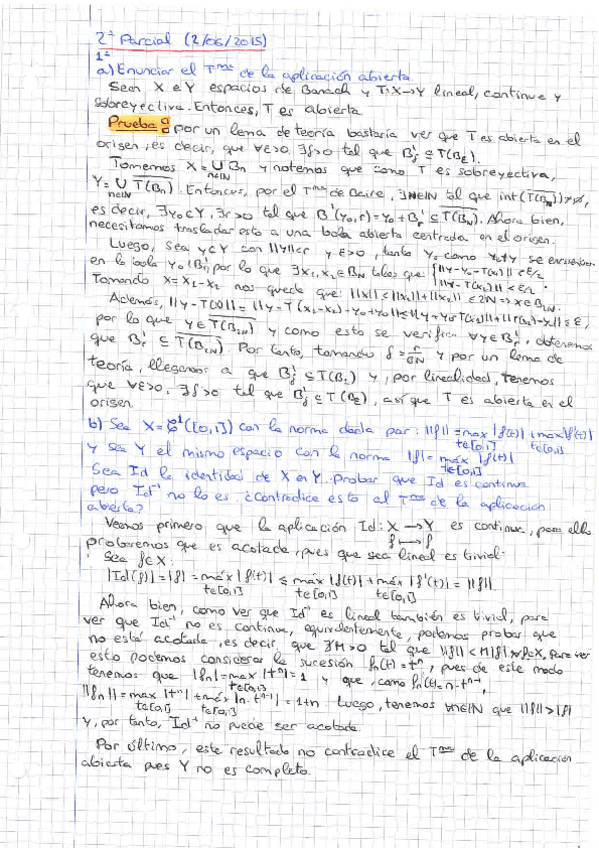 2º Parcial (2/06/2015)
1º
a) Enunciar el Tma de la aplicación abierta.
Sean X e Y espacios de Banach y T: X→Y lineal, continua y
sobreyectiva. Entonces, T es abierta
Prueba: por un lema de teoría bastaría ver que T es abierta en el
origen, es decir, que ∀ε>0, ∃δ>0 tal que B'δ ⊆ T(Bε).
Tomemos X = ∪ Bn y notemos que como T es sobreyectiva,
n∈ℕ
Y = ∪ T(Bn). Entonces, por el Tma de Baire, ∃N∈ℕ tal que int(T(BN)) ≠ ∅,
n∈ℕ
es decir, ∃y₀∈Y, ∃r>0 tal que B'(y₀,r) = y₀+B'r ⊆ T(BN). Ahora bien,
necesitamos trasladar esto a una bola abierta centrada en el origen.
Luego, sea y∈Y con ||y||<r y ε>0, tanto y₀ como y₀+y se encuentran
en la bola y₀+B'r, por lo que ∃x₁,x₂∈BN tales que:
Tomando x = x₁-x₂ nos queda que: ||x|| ≤ ||x₁||+||x₂|| ≤ 2N ⇒ x∈B2N.
Además, ||y-T(x)|| = ||y-T(x₁-x₂)-y₀+y₀|| ≤ ||y+y₀-T(x₁)||+||T(x₂)-y₀|| ≤ ε,
por lo que y∈T(B2N) y como esto se verifica ∀y∈B'r, obtenemos
que B'r ⊆ T(B2N). Por tanto, tomando δ = y por un lema de
teoría, llegamos a que B'δ ⊆ T(Bε) y, por linealidad, tenemos
que ∀ε>0, ∃δ>0 tal que B'δ ⊆ T(Bε), así que T es abierta en el
origen.
b) Sea X = 𝒞¹([0,1]) con la norma dada por: ||f|| = max |f(t)| + max |f'(t)|
t∈[0,1] t∈[0,1]
y sea Y el mismo espacio con la norma |f| = max |f(t)|
t∈[0,1]
Sea Id la identidad de X en Y. Probar que Id es continua
pero Id⁻¹ no lo es ¿Contradice esto al Tma de la aplicación
abierta?
Veamos primero que la aplicación Id: X → Y es continua, para ello
f → f
probaremos que es acotada, pues que sea lineal es trivial.
Sea f∈X:
|Id(f)| = |f| = máx |f(t)| ≤ máx |f(t)| + máx |f'(t)| = ||f||.
t∈[0,1] t∈[0,1] t∈[0,1]
Ahora bien, como ver que Id⁻¹ es lineal también es trivial, para
ver que Id⁻¹ no es continua, equivalentemente, podemos probar que
no está acotada, es decir, que ∄M>0 tal que ||f|| < M|f| ∀f∈X. Para ver
esto podemos considerar la sucesión fn(t) = tⁿ, pues de este modo
tenemos que |fn| = max |tⁿ| = 1 y que, como f'n(t) = n·tⁿ⁻¹,
t∈[0,1]
||fn|| = max |tⁿ| + máx |n·tⁿ⁻¹| = 1+n Luego, tenemos ∀n∈ℕ que ||f|| > |f|
t∈[0,1] t∈[0,1]
y, por tanto, Id⁻¹ no puede ser acotada.
Por último, este resultado no contradice el Tma de la aplicación
abierta pues Y no es completo.